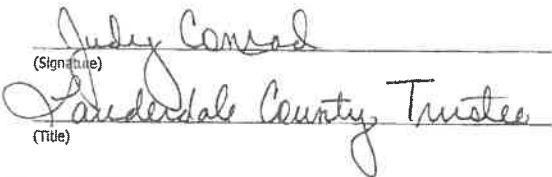 Judy Conrad
(Signature)
Lauderdale County Trustee
(Title)